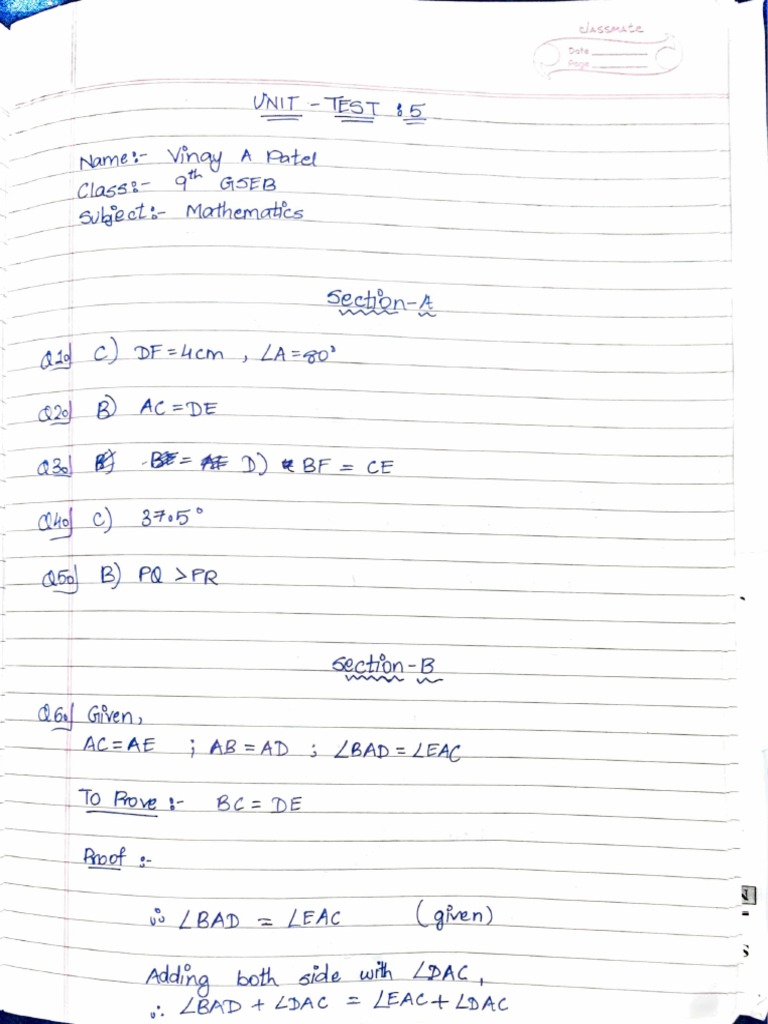 classmate
Date
Page
UNIT - TEST : 5
Name:- Vinay A Patel
Class:- 9th GSEB
Subject:- Mathematics
Section-A
Q1. C) DF = 4cm , ∠A = 80°
Q2. B) AC = DE
Q3. D) BF = CE
Q4. C) 37.5°
Q5. B) PQ > PR
Section-B
Q6. Given,
AC = AE ; AB = AD ; ∠BAD = ∠EAC
To Prove :- BC = DE
Proof :-
∵ ∠BAD = ∠EAC (given)
Adding both side with ∠DAC,
∴ ∠BAD + ∠DAC = ∠EAC + ∠DAC